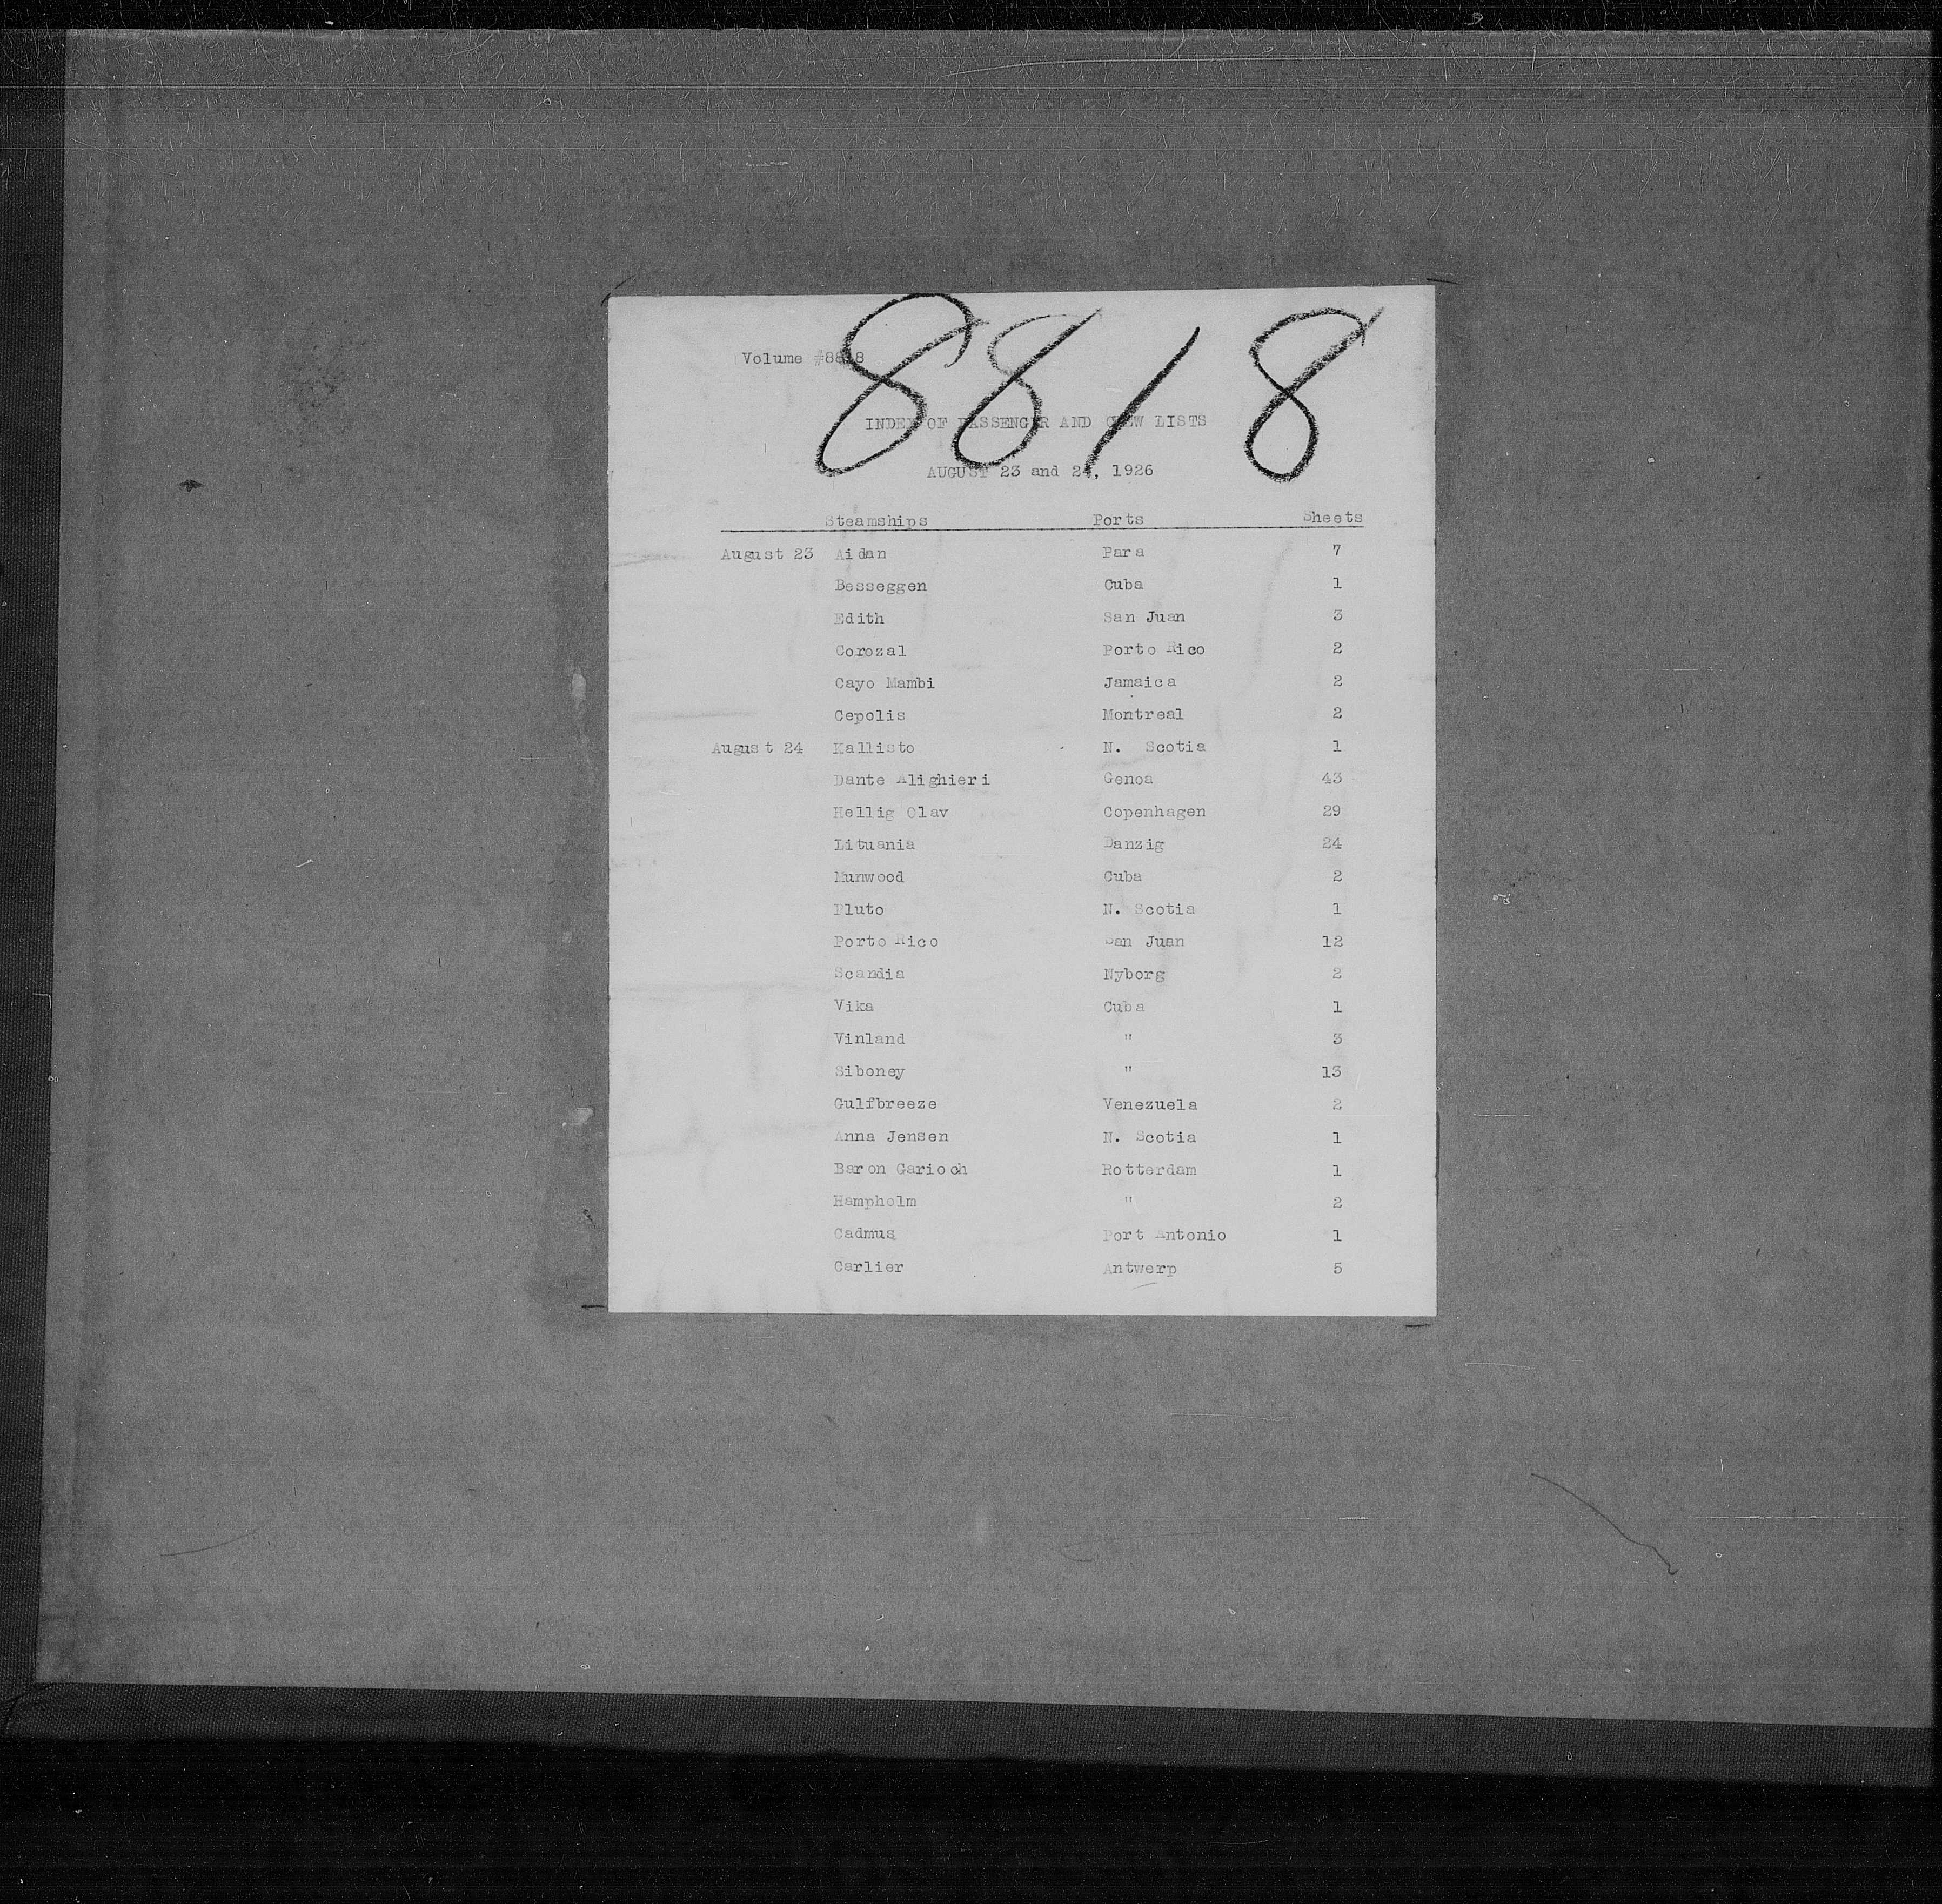 8818
Volume #8818
INDEX OF PASSENGER AND CREW LISTS
AUGUST 23 and 24, 1926
Steamships Ports Sheets
August 23 Aidan Para 7
Besseggen Cuba 1
Edith San Juan 3
Corozal Porto Rico 2
Cayo Mambi Jamaica 2
Cepolis Montreal 2
August 24 Kallisto N. Scotia 1
Dante Alighieri Genoa 43
Hellig Olav Copenhagen 29
Lituania Danzig 24
Munwood Cuba 2
Pluto N. Scotia 1
Porto Rico San Juan 12
Scandia Nyborg 2
Vika Cuba 1
Vinland " 3
Siboney " 13
Gulfbreeze Venezuela 2
Anna Jensen N. Scotia 1
Baron Garioch Rotterdam 1
Hampholm " 2
Cadmus Port Antonio 1
Carlier Antwerp 5